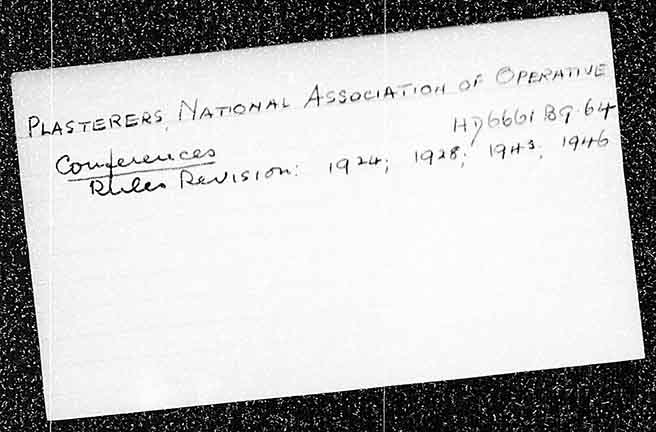 PLASTERERS, NATIONAL ASSOCIATION OF OPERATIVE
HD6661 B9.64
Conferences
Rules Revision: 1924; 1928; 1943; 1946